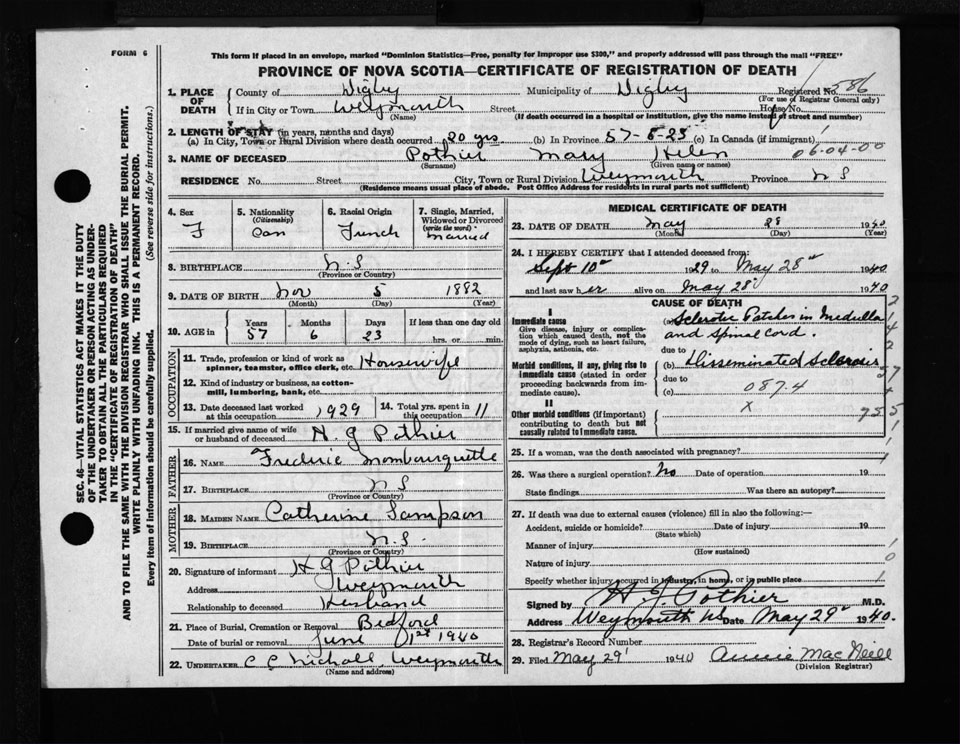 FORM 6
This form if placed in an envelope, marked "Dominion Statistics—Free, penalty for improper use $300," and properly addressed will pass through the mail "FREE"
PROVINCE OF NOVA SCOTIA—CERTIFICATE OF REGISTRATION OF DEATH
SEC. 46—VITAL STATISTICS ACT MAKES IT THE DUTY
OF THE UNDERTAKER OR PERSON ACTING AS UNDER-
TAKER TO OBTAIN ALL THE PARTICULARS REQUIRED
IN THE "CERTIFICATE OF REGISTRATION OF DEATH"
AND TO FILE THE SAME WITH THE DIVISION REGISTRAR WHO SHALL ISSUE THE BURIAL PERMIT.
WRITE PLAINLY WITH UNFADING INK. THIS IS A PERMANENT RECORD.
Every item of information should be carefully supplied. (See reverse side for instructions.)
1. PLACE OF DEATH County of Digby Municipality of Digby Registered No. 586
(For use of Registrar General only)
If in City or Town Weymouth Street House No.
(Name) (If death occurred in a hospital or institution, give the name instead of street and number)
2. LENGTH OF STAY (in years, months and days)
(a) In City, Town or Rural Division where death occurred 20 yrs (b) In Province 57-6-23 (c) In Canada (if immigrant)
3. NAME OF DECEASED Pothier Mary Helen 06-04-00
(Surname) (Given name or names)
RESIDENCE No. Street City, Town or Rural Division Weymouth Province N S
(Residence means usual place of abode. Post Office Address for residents in rural parts not sufficient)
4. Sex F
5. Nationality (Citizenship) Can
6. Racial Origin French
7. Single, Married, Widowed or Divorced (write the word) Married
8. BIRTHPLACE N.S
(Province or Country)
9. DATE OF BIRTH Nov 5 1882
(Month) (Day) (Year)
10. AGE in Years 57 Months 6 Days 23 If less than one day old hrs. or min.
OCCUPATION
11. Trade, profession or kind of work as spinner, teamster, office clerk, etc. Housewife
12. Kind of industry or business, as cotton-mill, lumbering, bank, etc.
13. Date deceased last worked at this occupation 1929
14. Total yrs. spent in this occupation 11
15. If married give name of wife or husband of deceased H. G Pothier
FATHER
16. NAME Frederic Mombourquette
17. BIRTHPLACE N S
(Province or Country)
MOTHER
18. MAIDEN NAME Catherine Sampson
19. BIRTHPLACE N.S.
(Province or Country)
20. Signature of informant H G Pothier
Address Weymouth
Relationship to deceased Husband
21. Place of Burial, Cremation or Removal Bedford
Date of burial or removal June 1st 1940
22. UNDERTAKER C C Nicholl, Weymouth
(Name and address)
MEDICAL CERTIFICATE OF DEATH
23. DATE OF DEATH May 28 1940
(Month) (Day) (Year)
24. I HEREBY CERTIFY that I attended deceased from:
Sept 10th 1929 to May 28th 1940
and last saw her alive on May 28 1940
CAUSE OF DEATH
I
Immediate cause
Give disease, injury or complication which caused death, not the mode of dying, such as heart failure, asphyxia, asthenia, etc.
(a) Sclerotic Patches in Medulla
and Spinal Cord.
due to
Morbid conditions, if any, giving rise to immediate cause (stated in order proceeding backwards from immediate cause)
(b) Disseminated Sclerosis
due to
(c) 087.4
II
Other morbid conditions (if important) contributing to death but not causally related to immediate cause.
X
25. If a woman, was the death associated with pregnancy?
26. Was there a surgical operation? No Date of operation 19
State findings Was there an autopsy?
27. If death was due to external causes (violence) fill in also the following:—
Accident, suicide or homicide? Date of injury 19
(State which)
Manner of injury
(How sustained)
Nature of injury
Specify whether injury occurred in industry, in home, or in public place
Signed by H G Pothier M.D.
Address Weymouth NS Date May 29th 1940.
28. Registrar's Record Number
29. Filed May 29 1940 Annie MacNeill
(Division Registrar)